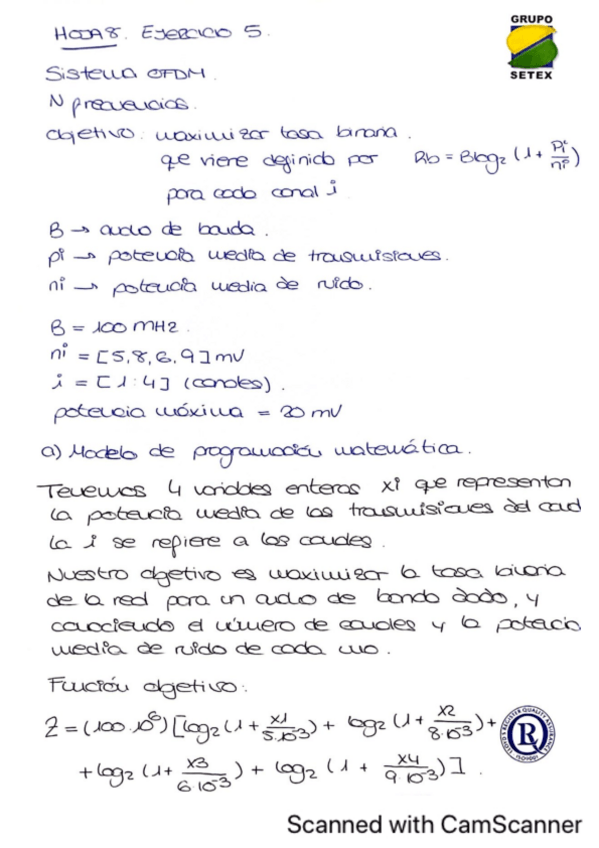 HOJA 8. EJERCICIO 5.
GRUPO
SETEX
Sistema OFDM.
N frecuencias.
Objetivo: maximizar tasa binaria.
que viene definido por Rb = Blog2 (1 + Pi/ni)
para cada canal i
B → ancho de banda.
pi → potencia media de transmisiones.
ni → potencia media de ruido.
B = 100 MHz.
ni = [5,8,6,9] mV
i = [1:4] (canales).
potencia máxima = 20 mV
a) Modelo de programación matemática.
Tenemos 4 variables enteras xi que representan
la potencia media de las transmisiones del canal
la i se refiere a los canales.
Nuestro objetivo es maximizar la tasa binaria
de la red para un ancho de banda dado, y
conociendo el número de canales y la potencia
media de ruido de cada uno.
Función objetivo:
Z = (100·10^6) [log2 (1 + x1/5·10^-3) + log2 (1 + x2/8·10^-3) +
+ log2 (1 + x3/6·10^-3) + log2 (1 + x4/9·10^-3)].
Scanned with CamScanner